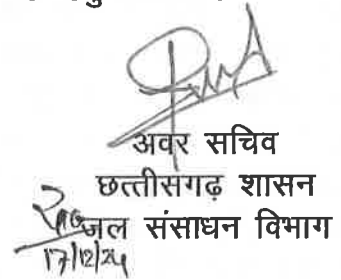 अवर सचिव
छत्तीसगढ़ शासन
जल संसाधन विभाग
17/12/24